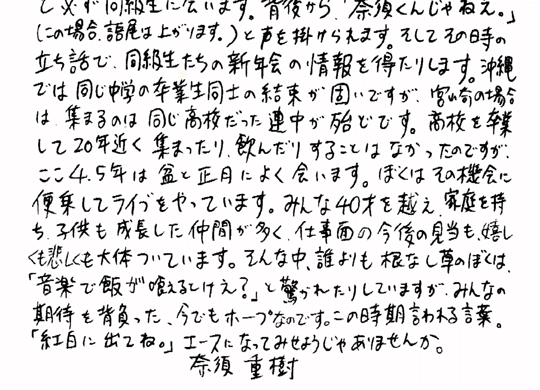 て必ず同級生に会います。背後から、「奈須くんじゃねえ。」
(この場合、語尾は上がります。)と声を掛けられます。そしてその日の
立ち話で、同級生たちの新年会の情報を得たりします。沖縄
では同じ中学の卒業生同士の結束が固いですが、宮崎の場合
は、集まるのは同じ高校だった連中が殆どです。高校を卒業
して20年近く集まったり、飲んだりすることはなかったのですが、
ここ4.5年は盆と正月によく会います。ぼくはその機会に
便乗してライブをやっています。みんな40才を越え、家庭を持
ち、子供も成長した仲間が多く、仕事面の今後の見当も、嬉し
くも悲しくも大体ついています。そんな中、誰よりも根なし草のぼくは、
「音楽で飯が喰えるとけえ?」と驚かれたりしていますが、みんなの
期待を背負った、今でもホープなのです。この時期言われる言葉。
「紅白に出てね。」エースになってみせようじゃありませんか。
奈須 重樹